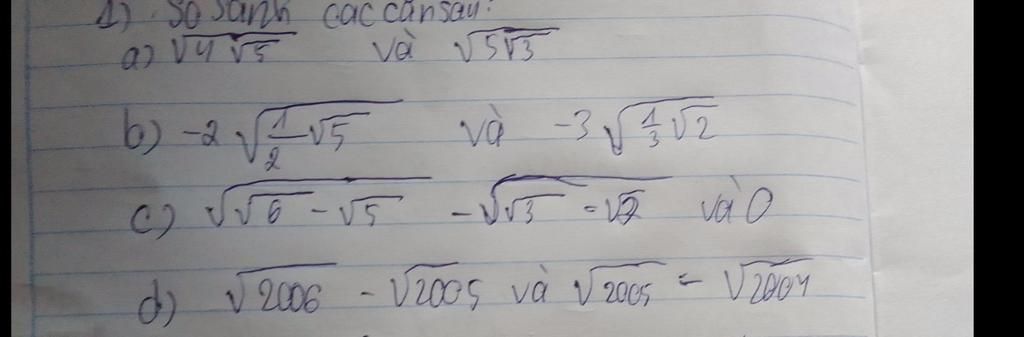 1) So sánh các căn sau:
a) √(4√5) và √(5√3)
b) -2√(1/2 √5) và -3√(1/3 √2)
c) √(√6 - √5) - √(√3 - √2) và 0
d) √2006 - √2005 và √2005 - √2004